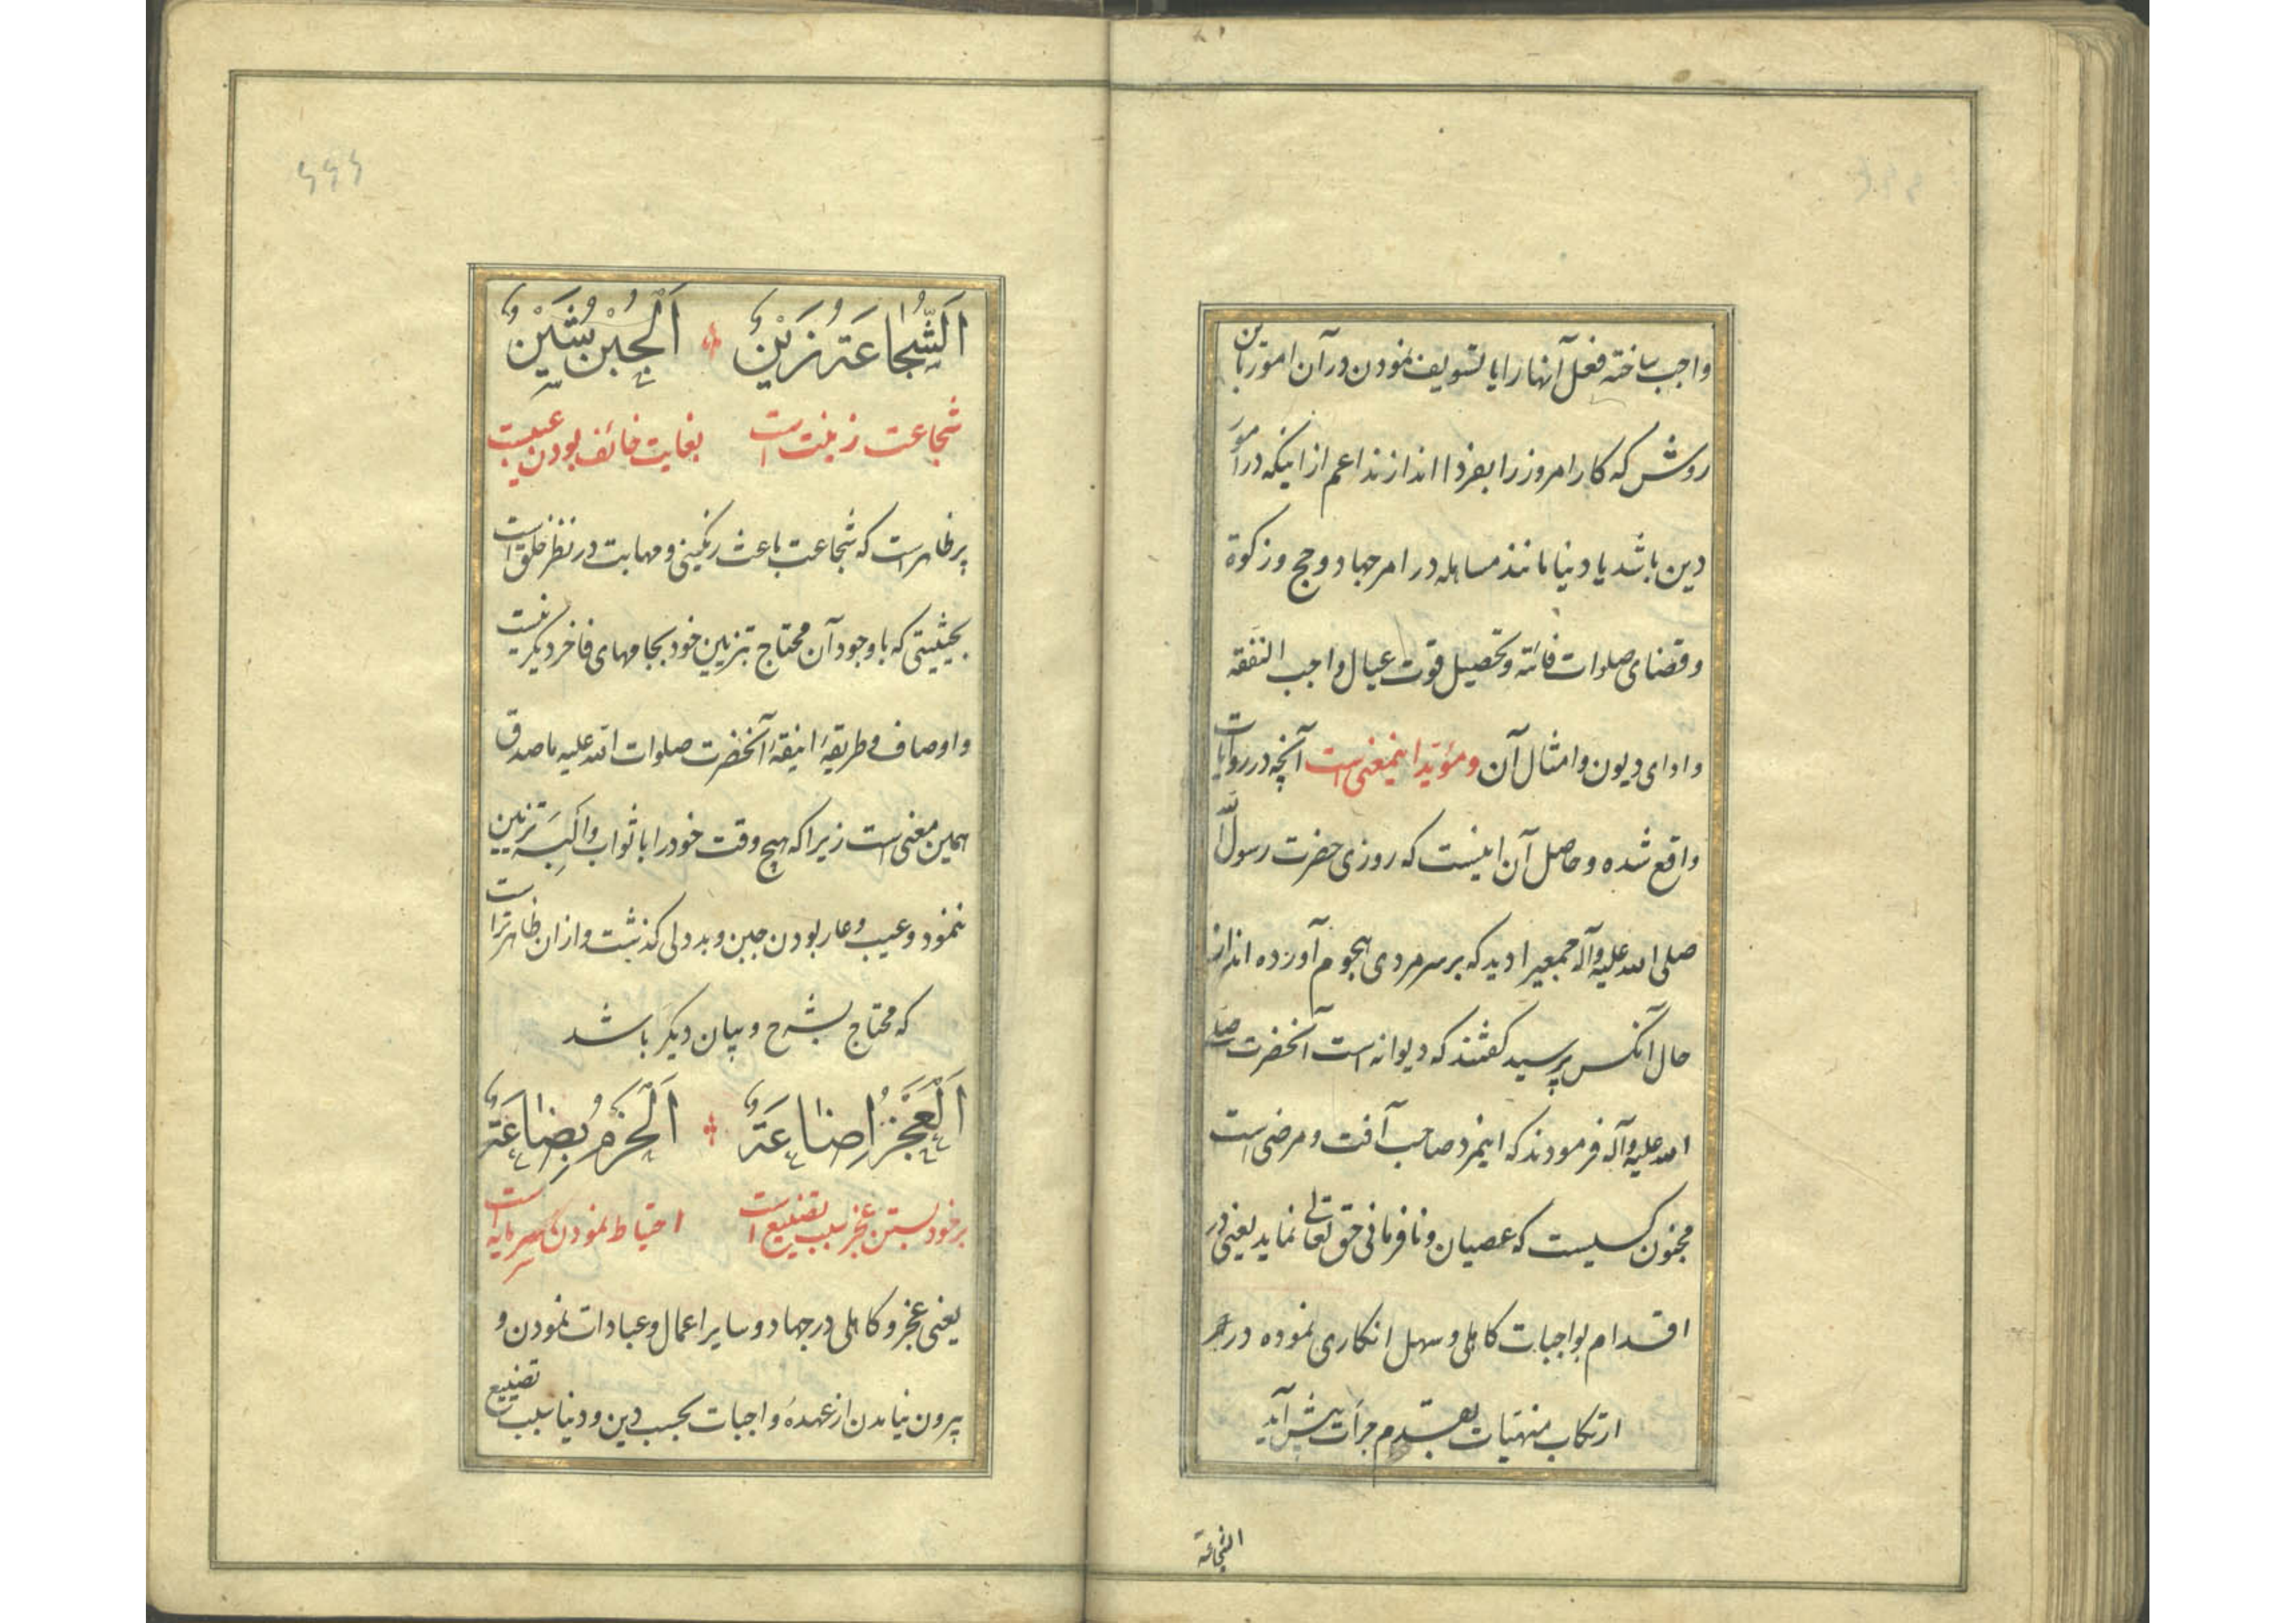 واجب ساخته فعل آنها را یا تسویف نمودن در آن امور باین
روش که کار امروز را بفردا اندازند اعم از اینکه در امور
دین باشد یا دنیا مانند مساهله در امر جهاد و حج و زکوة
و قضای صلوات فائته و تحصیل قوت عیال واجب النفقه
و ادای دیون و امثال آن و مؤید اینمعنی است آنچه در روایات
واقع شده و حاصل آن اینست که روزی حضرت رسول الله
صلی الله علیه وآله جمعیرا دید که بر سر مردی هجوم آورده اند از
حال آنکس پرسید کفتند که دیوانه است آنحضرت صلی
الله علیه وآله فرمودند که اینمرد صاحب آفت و مرضی است
مجنون کسیست که عصیان و نافرمانی حق تعالی نماید یعنی در
اقدام بواجبات کاهلی و سهل انکاری نموده در
ارتکاب منهیات بقدم جرأت پیش آید
الشجاعة
۶۶۶
اَلشَّجَاعَةُ زَيْنٌ اَلْجُبْنُ شَيْنٌ
شجاعت زینت است بغایت خائف بودن عیبست
پر ظاهر است که شجاعت باعث رنکینی و مهابت در نظر خلق است
بحیثیتی که با وجود آن محتاج بتزیین خود بجامهای فاخر دیکر نیست
و اوصاف و طریقهٔ انیقهٔ آنحضرت صلوات الله علیه ما صدق
همین معنی است زیرا که هیچ وقت خود را با ثواب و البسه تزیین
ننمود و عیب و عار بودن جبن و بد دلی کذشت و از آن ظاهرتر است
که محتاج بشرح و بیان دیکر باشد
اَلْعَجْزُ اِضَاعَةٌ اَلْحَزْمُ بِضَاعَةٌ
بر خود بستن عجز سبب تضییع است احتیاط نمودن سرمایه است
یعنی عجز و کاهلی در جهاد و سایر اعمال و عبادات نمودن و
بیرون نیامدن از عهدهٔ واجبات بحسب دین و دنیا سبب تضییع